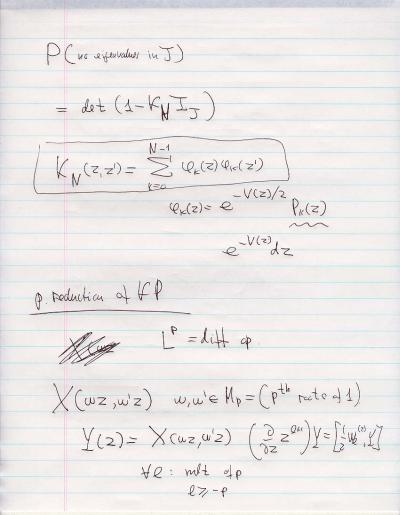 P(no eigenvalues in J)
= det (1 - K_N I_J)
K_N(z,z') = ∑_{k=0}^{N-1} φ_k(z) φ_k(z')
φ_k(z) = e^{-V(z)/2} P_k(z)
e^{-V(z)} dz
p. reduction of KP
L^p = diff op.
X(ωz, ω'z) ω, ω' ∈ M_p = (p^{th} roots of 1)
Y(z) = X(ωz, ω'z) (∂/∂z z^{ℓ+1}) Y = [½ W_ℓ^{(2)}, Y]
∀ℓ : mlt of p
ℓ ≥ -p